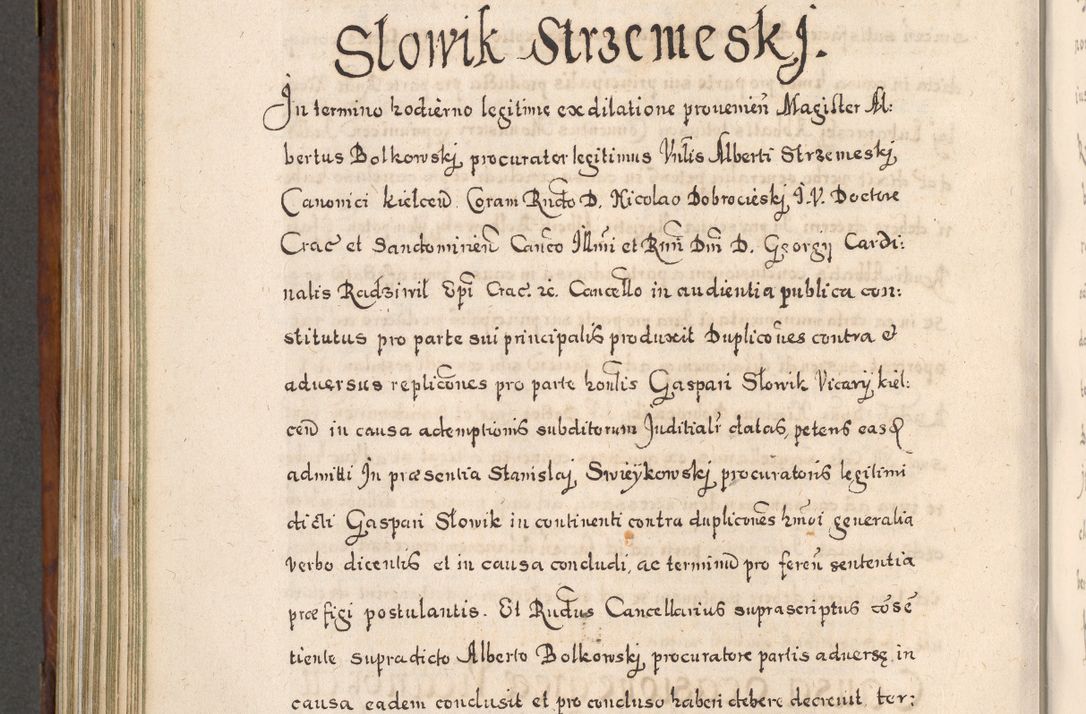 Słowik Strzemeskj.
In termino hodierno legitime ex dilatione prouenien̄ Magister Al:
bertus Bolkowskj procurator legitimus Vnlis Alberti Strzemeskj
Canonici Kielcen̄. Coram Rndo D. Nicolao Dobrocieskj I.V. Doctore
Crac et Sandomirien̄ Canco Illmi et Rmi Dni D. Georgij Cardi:
nalis Radziwil Epi Crac. zc. Cancello in audientia publica con:
stitutus pro parte sui principalis produxit Duplicones contra et
aduersus replicones pro parte honlis Gaspari Słowik Vicarij kiel:
cen̄ in causa ademptionis subditorum Juditialr datas, petens easq
admitti In præsentia Stanislaj Swieÿkowskj procuratoris legitimi
dicti Gaspari Słowik in continenti contra duplicones hmoi generalia
verbo dicentis et in causa concludi, ac terminū pro feren̄ sententia
præfigi postulantis. Et Rndus Cancellarius suprascriptus cōsē
tiente supradicto Alberto Bolkowskj procuratore partis aduersę in
causa eadem conclusit et pro concluso haberi debere decreuit, ter: